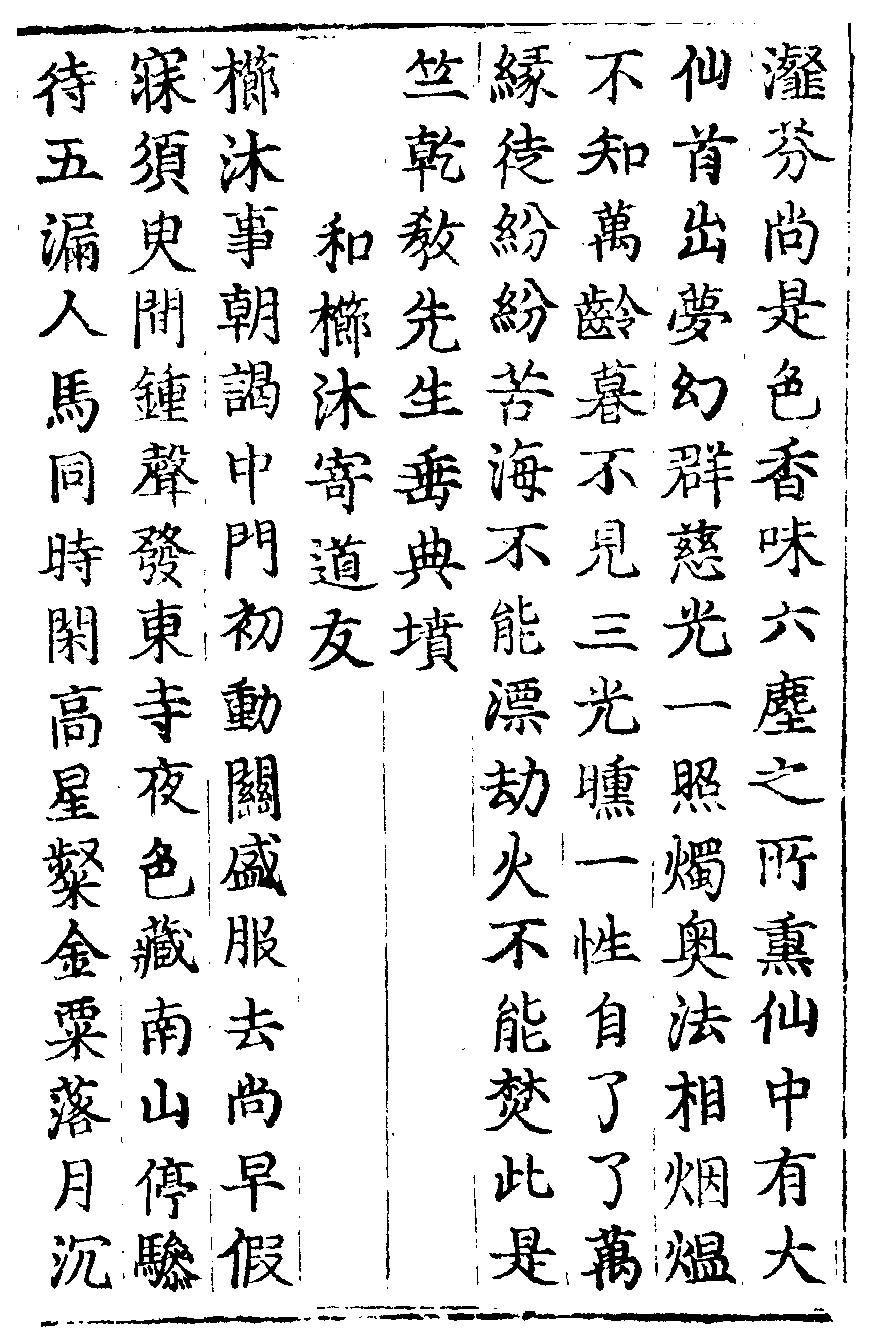 瀣芬尚是色香味六塵之所熏仙中有大
仙首出夢幻群慈光一照燭奧法相烟熅
不知萬齡暮不見三光曛一性自了了萬
緣徒紛紛苦海不能漂劫火不能焚此是
竺乾教先生垂典墳
和櫛沐寄道友
櫛沐事朝謁中門初動關盛服去尚早假
寐須臾間鍾聲發東寺夜色藏南山停驂
待五漏人馬同時閑高星粲金粟落月沉